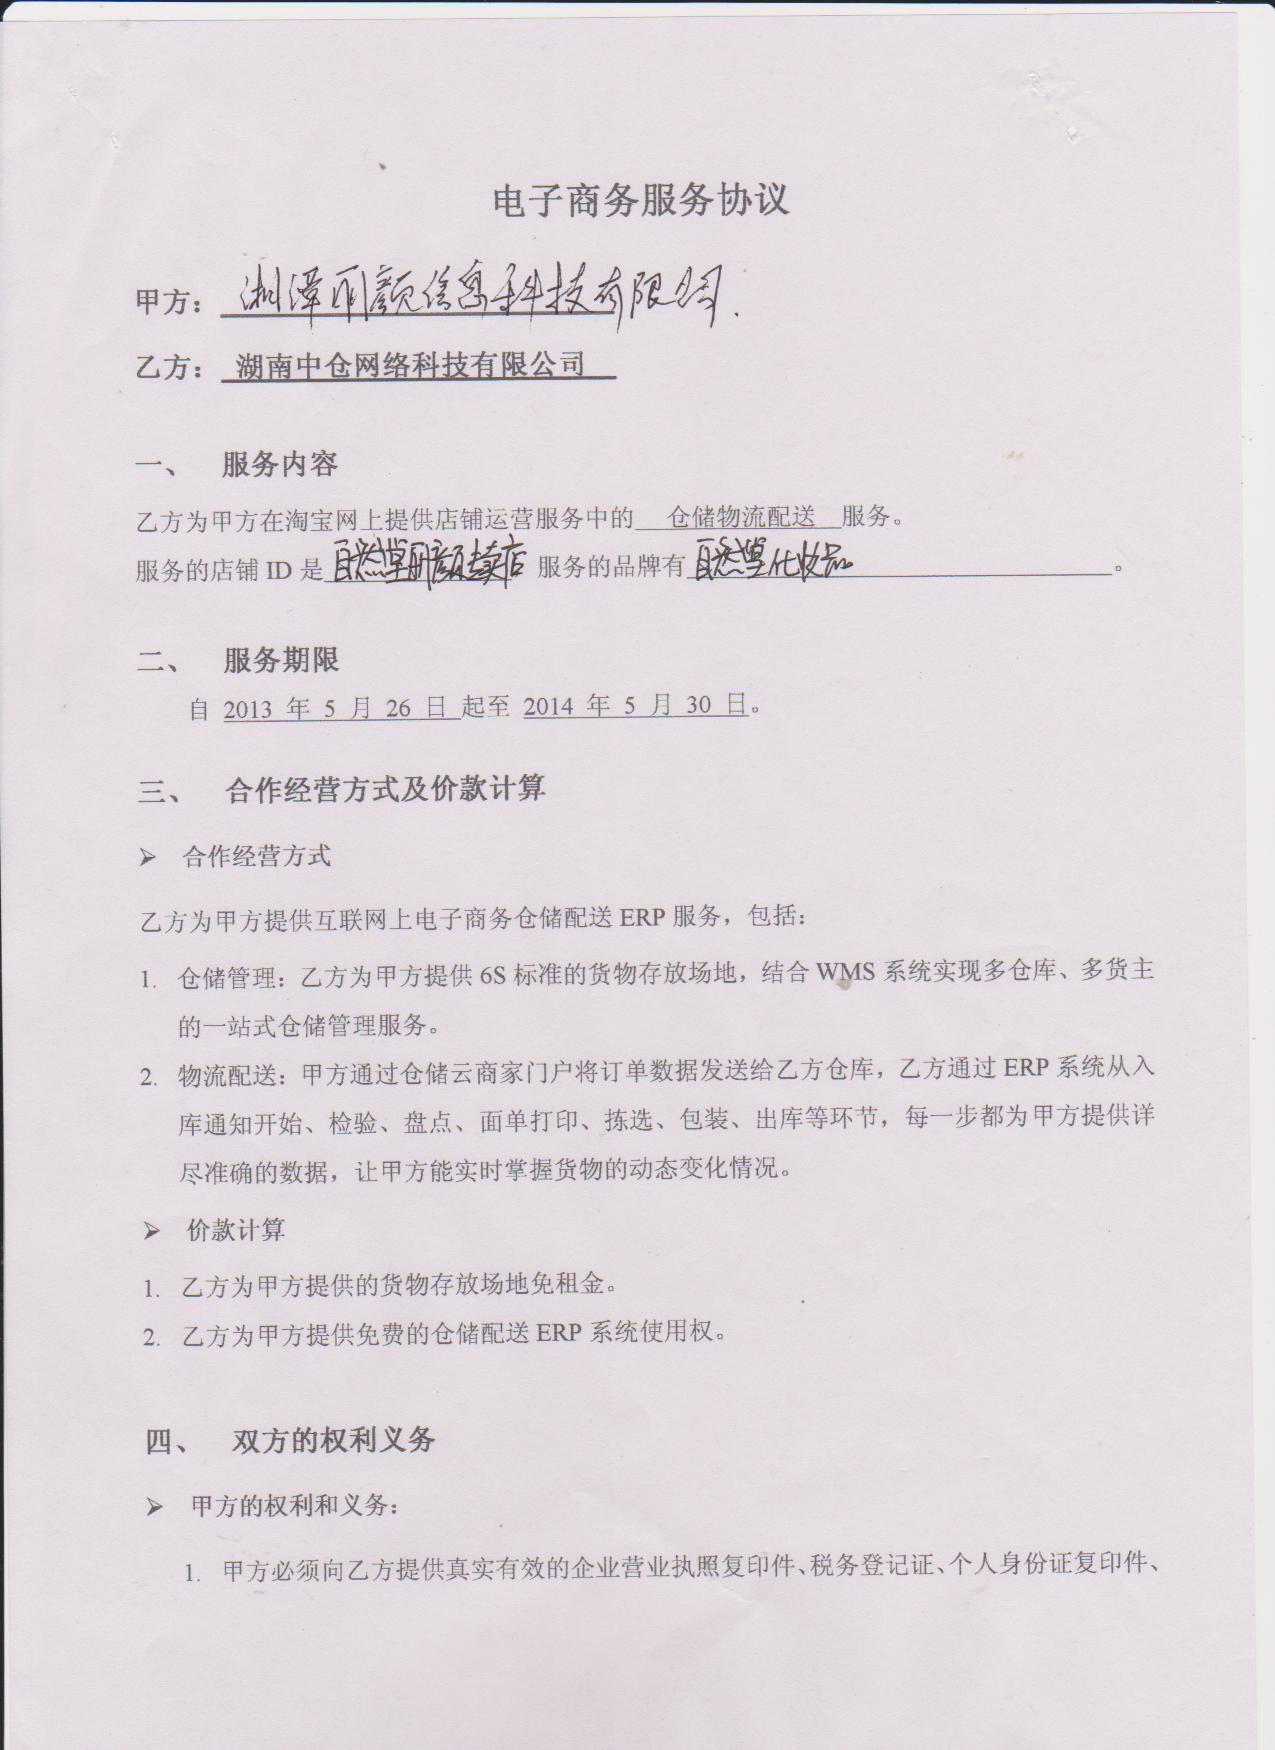 电子商务服务协议
甲方： 湘潭丽颜信息科技有限公司.
乙方： 湖南中仓网络科技有限公司
一、 服务内容
乙方为甲方在淘宝网上提供店铺运营服务中的 仓储物流配送 服务。
服务的店铺 ID 是 自然堂丽颜专卖店 服务的品牌有 自然堂化妆品 。
二、 服务期限
自 2013 年 5 月 26 日 起至 2014 年 5 月 30 日。
三、 合作经营方式及价款计算
➢ 合作经营方式
乙方为甲方提供互联网上电子商务仓储配送 ERP 服务，包括：
1. 仓储管理：乙方为甲方提供 6S 标准的货物存放场地，结合 WMS 系统实现多仓库、多货主
的一站式仓储管理服务。
2. 物流配送：甲方通过仓储云商家门户将订单数据发送给乙方仓库，乙方通过 ERP 系统从入
库通知开始、检验、盘点、面单打印、拣选、包装、出库等环节，每一步都为甲方提供详
尽准确的数据，让甲方能实时掌握货物的动态变化情况。
➢ 价款计算
1. 乙方为甲方提供的货物存放场地免租金。
2. 乙方为甲方提供免费的仓储配送 ERP 系统使用权。
四、 双方的权利义务
➢ 甲方的权利和义务：
1. 甲方必须向乙方提供真实有效的企业营业执照复印件、税务登记证、个人身份证复印件、